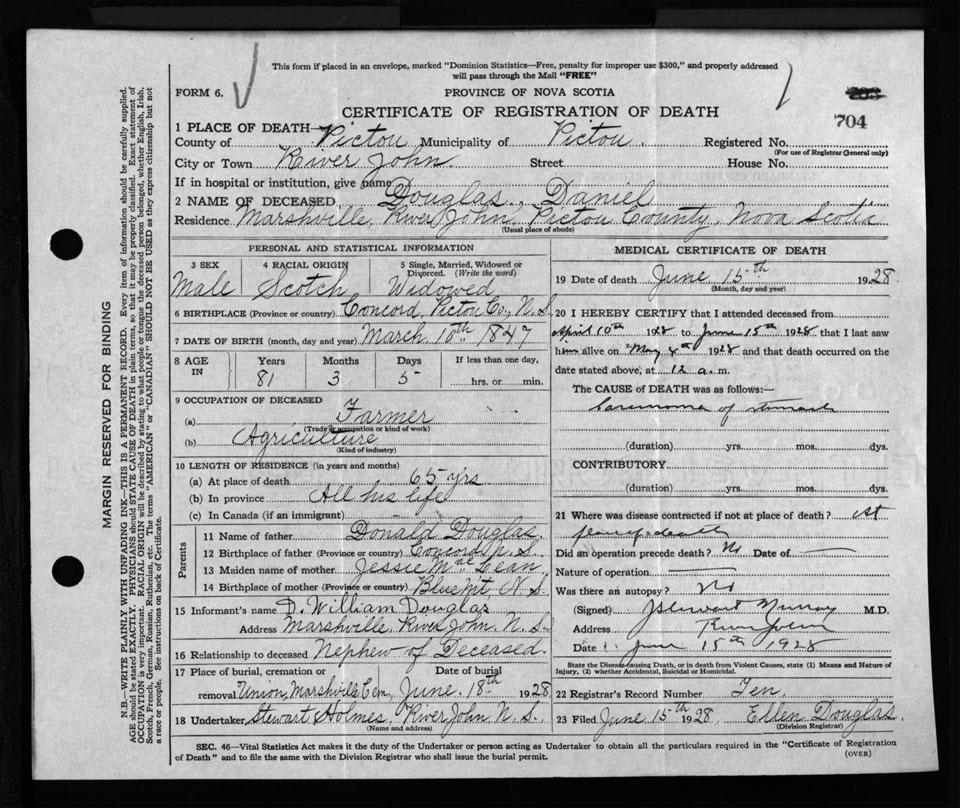 This form if placed in an envelope, marked "Dominion Statistics—Free, penalty for improper use $300," and properly addressed
will pass through the Mail "FREE"
FORM 6.
PROVINCE OF NOVA SCOTIA
CERTIFICATE OF REGISTRATION OF DEATH
704
1 PLACE OF DEATH—
County of Pictou Municipality of Pictou. Registered No.
(For use of Registrar General only)
City or Town River John Street House No.
If in hospital or institution, give name
2 NAME OF DECEASED, Douglas, Daniel
Residence Marshville, River John, Pictou County, Nova Scotia
(Usual place of abode)
PERSONAL AND STATISTICAL INFORMATION
3 SEX 4 RACIAL ORIGIN 5 Single, Married, Widowed or Divorced. (Write the word)
Male Scotch Widowed
6 BIRTHPLACE (Province or country) Concord, Pictou Co, N.S.
7 DATE OF BIRTH (month, day and year) March 10th 1847
8 AGE IN Years Months Days If less than one day,
81 3 5 hrs. or min.
9 OCCUPATION OF DECEASED
(a) Farmer
(Trade or occupation or kind of work)
(b) Agriculture
(Kind of industry)
10 LENGTH OF RESIDENCE (in years and months)
(a) At place of death 65 yrs
(b) In province All his life
(c) In Canada (if an immigrant)
Parents
11 Name of father Donald Douglas.
12 Birthplace of father (Province or country) Concord N.S.
13 Maiden name of mother Jessie McLean
14 Birthplace of mother (Province or country) Blue Mt. N.S.
15 Informant's name D. William Douglas
Address Marshville, River John, N.S.
16 Relationship to deceased Nephew of Deceased.
17 Place of burial, cremation or Date of burial
removal Union, Marshville Cem, June. 18th 1928
18 Undertaker, Stewart Holmes, River John N.S.
(Name and address)
MEDICAL CERTIFICATE OF DEATH
19 Date of death June 15th 1928
(Month, day and year)
20 I HEREBY CERTIFY that I attended deceased from
April 10th 1928 to June 15th 1928 that I last saw
him alive on May 4th 1928 and that death occurred on the
date stated above, at 12 a.m.
The CAUSE OF DEATH was as follows:—
Carcinoma of stomach
(duration) yrs. mos. dys.
CONTRIBUTORY.
(duration) yrs. mos. dys.
21 Where was disease contracted if not at place of death? At
place of death
Did an operation precede death? No Date of —
Nature of operation —
Was there an autopsy? No
(Signed) J Stewart Murray M.D.
Address River John
Date June 15th 1928
State the Disease causing Death, or in death from Violent Causes, state (1) Means and Nature of
Injury, (2) whether Accidental, Suicidal or Homicidal.
22 Registrar's Record Number Ten.
23 Filed June 15th 1928, Ellen Douglas.
(Division Registrar)
SEC. 46—Vital Statistics Act makes it the duty of the Undertaker or person acting as Undertaker to obtain all the particulars required in the "Certificate of Registration
of Death" and to file the same with the Division Registrar who shall issue the burial permit.
(OVER)
MARGIN RESERVED FOR BINDING
N.B.—WRITE PLAINLY WITH UNFADING INK—THIS IS A PERMANENT RECORD. Every item of information should be carefully supplied.
AGE should be stated EXACTLY. PHYSICIANS should STATE CAUSE OF DEATH in plain terms, so that it may be properly classified. Exact statement of
OCCUPATION is very important. RACIAL ORIGIN will be described by stating to what people or tongue the deceased person belonged, whether English, Irish,
Scotch, French, German, Russian, Ruthenian, etc. The terms "AMERICAN" or "CANADIAN" SHOULD NOT BE USED as they express citizenship but not
a race or people. See instructions on back of Certificate.